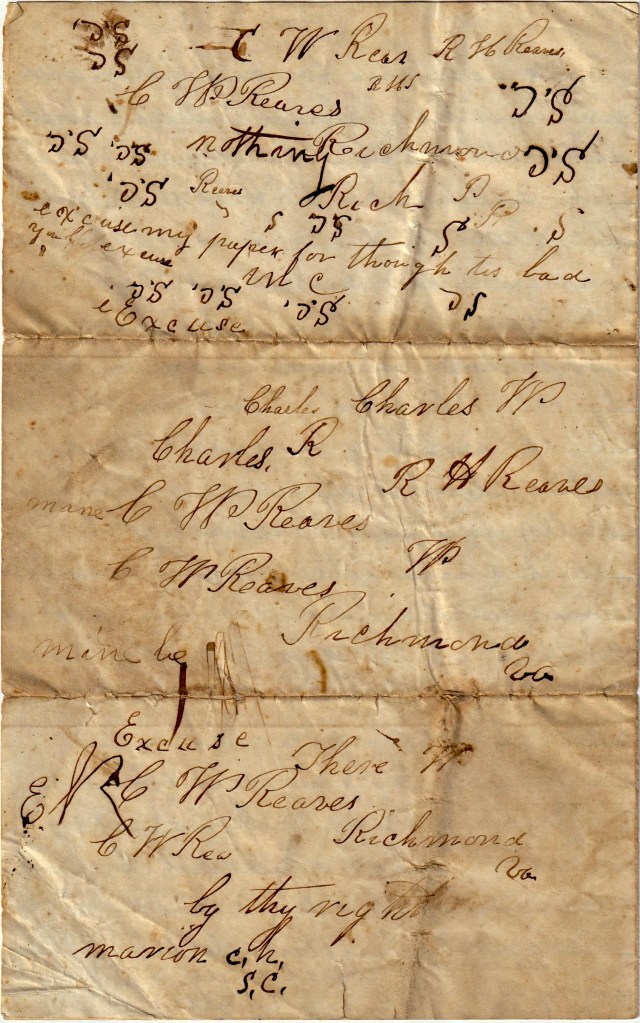 C W Reav R H Reaves,
C W Reaves R H S
nothing Richmond
Reaves Rich P
S S R S
excuse my paper for though tis bad
excuse m C
Excuse
Charles Charles W
Charles. R
R H Reaves
C W Reaves
C W Reaves W
Richmond
mine be
Va
Excuse There W
E C W Reaves
C W Rea Richmond
Va
by thy right
marion c. h,
S, C.